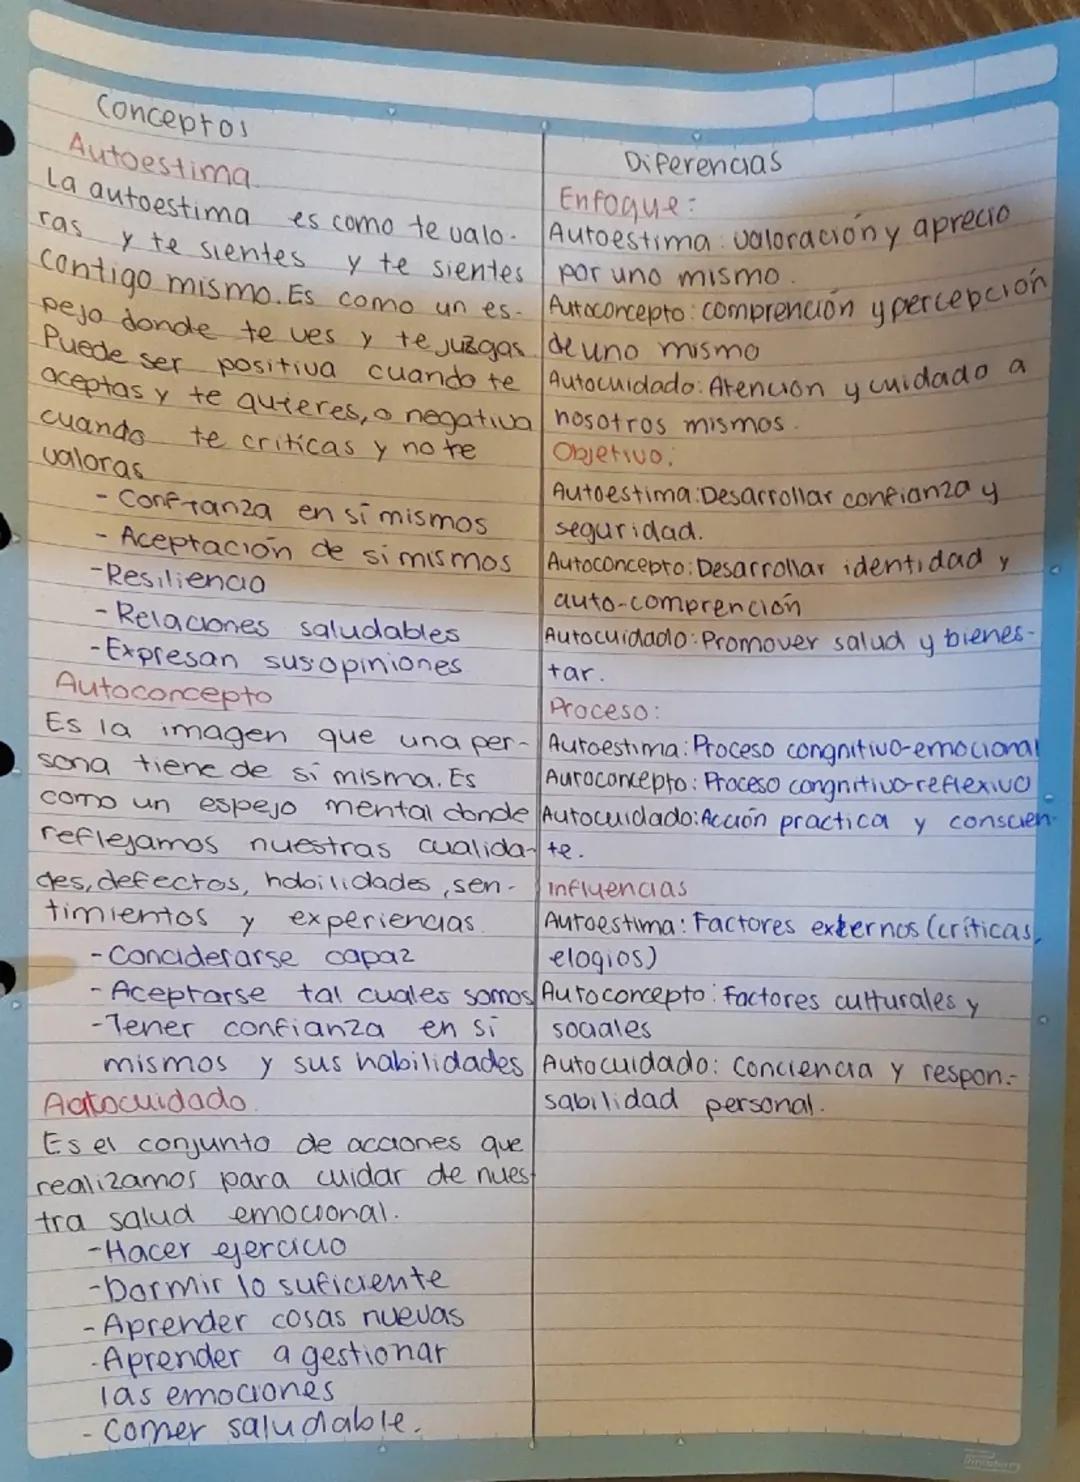 Conceptos
Autoestima
La autoestima es como te valo-
ras y te sientes y te sientes
contigo mismo. Es como un es-
pejo donde te ves y te juzgas
Puede ser positiva cuando te
aceptas y te quieres, o negativa
cuando te criticas y no te
valoras
- Confianza en sí mismos
- Aceptación de si mismos
-Resiliencia
- Relaciones saludables
-Expresan sus opiniones
Autoconcepto
Es la imagen que una per-
sona tiene de sí misma. Es
como un espejo mental donde
reflejamos nuestras cualida-
des, defectos, habilidades, sen-
timientos y experiencias.
-Conciderarse capaz
-Aceptarse tal cuales somos
-Tener confianza en sí
mismos y sus habilidades
Autocuidado.
Es el conjunto de acciones que
realizamos para cuidar de nues
tra salud emocional.
-Hacer ejercicio
-Dormir lo suficiente
-Aprender cosas nuevas
-Aprender a gestionar
las emociones
- Comer saludable.
Diferencias
Enfoque:
Autoestima: valoración y aprecio
por uno mismo.
Autoconcepto: comprención y percepción
de uno mismo
Autocuidado: Atención y cuidado a
nosotros mismos.
Objetivo:
Autoestima: Desarrollar confianza y
seguridad.
Autoconcepto: Desarrollar identidad y
auto-comprención
Autocuidado: Promover salud y bienes-
tar.
Proceso:
Autoestima: Proceso congnitivo-emocional
Autoconcepto: Proceso congnitivo-reflexivo
Autocuidado: Acción practica y conscien-
te.
Influencias
Autoestima: Factores externos (críticas,
elogios)
Autoconcepto: Factores culturales y
sociales
Autocuidado: Conciencia y respon-
sabilidad personal.